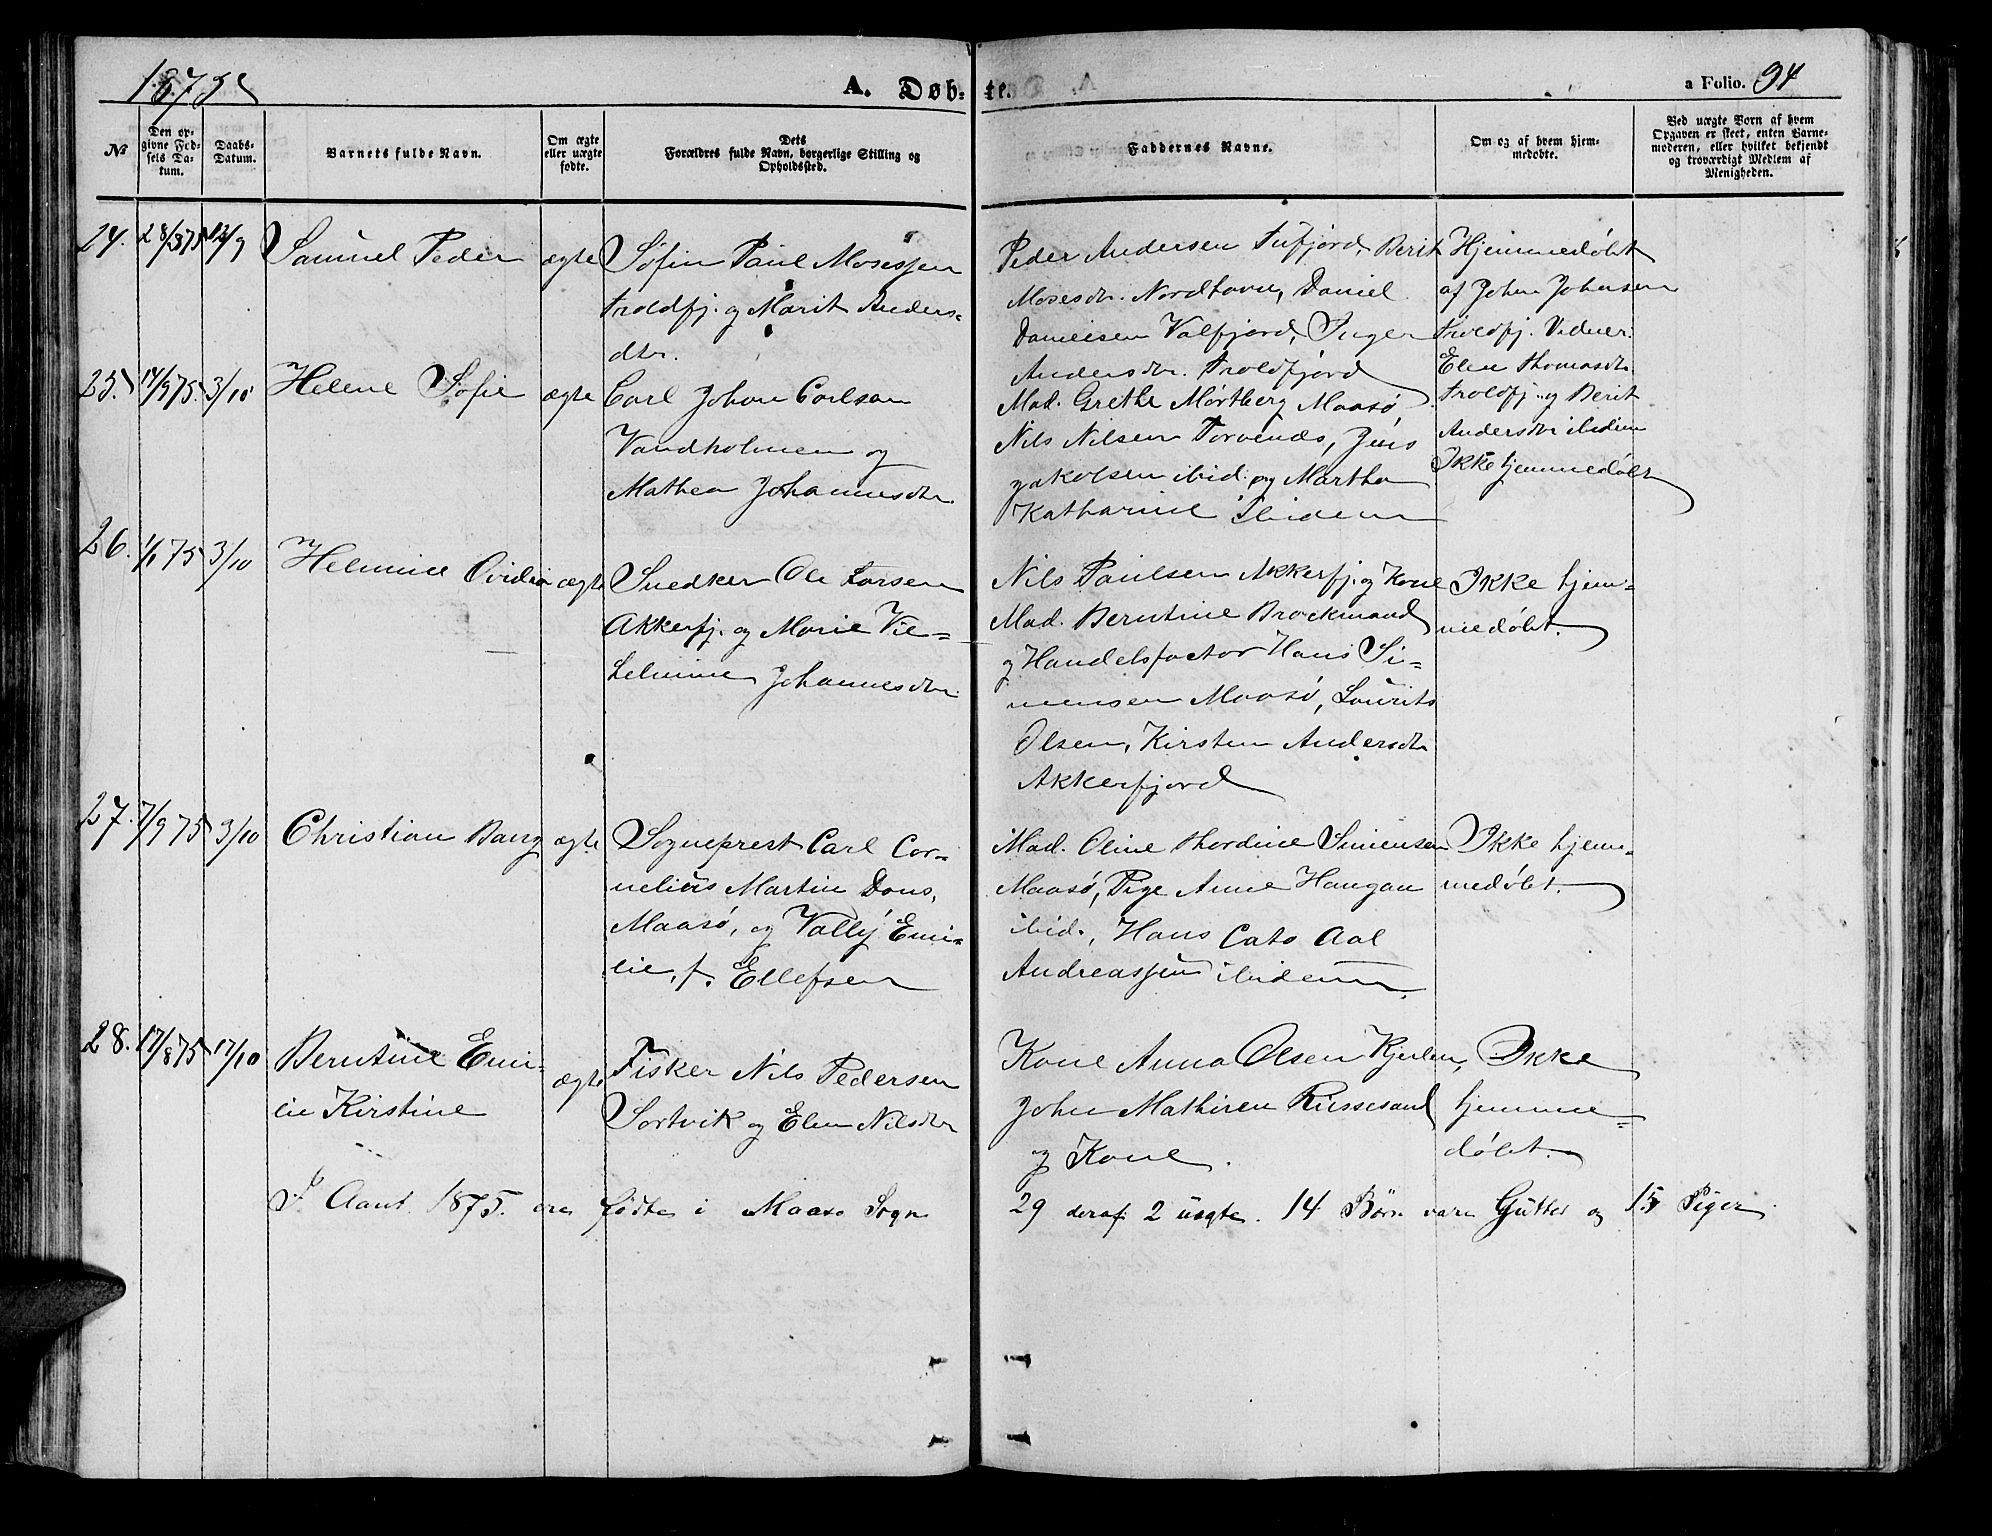 1875
A. Døb-
te.
a Folio. 94
№
Den op-
givne Fød-
sels Da-
tum.
Daabs-
Datum.
Barnets fulde Navn.
Om ægte
eller uægte
fødte.
Dets
Forældres fulde Navn, borgerlige Stilling og
Opholdssted.
Faddernes Navne.
Om og af hvem hjem-
medøbte.
Ved uægte Børn af hvem
Opgaven er skeet, enten Barne-
moderen, eller hvilket bekjendt
og troværdigt Medlem af
Menigheden.
24. 28/3 75 12/9 Samuel Peder ægte
Søfin Paul Mosessen
Troldfj. og Marit Anders-
dtr.
Peder Andersen Tufjord, Berit
Mosesdtr. Nordhavn, Daniel
Danielsen Valfjord, Inger
Andersdtr. Troldfjord
Hjemmedøbt
af John Johnsen
Troldfj. Vidner:
Elen Thomasdtr.
Troldfj. og Berit
Andersdtr ibidem
25. 14/9 75. 3/10 Helene Sofie ægte
Carl Johan Carlsen
Vandholmen og
Mathea Johannesdtr.
Mad. Grethe Mørtberg Maasø,
Nils Nilsen Torvenæs, Jens
Jakobsen ibid. og Martha
Katharine ibidem
Ikke hjemmedøbt
26. 1/1 75 3/10 Helmine Ovidia ægte
Snedker Ole Larsen
Akkerfj. og Marie Vil-
helmine Johannesdtr.
Nils Paulsen Akkerfj. og Kone
Mad. Berntine Brockmand
og Handelsfactor Hans Si-
mensen Maasø, Laurits
Olsen, Kirsten Andersdtr
Akkerfjord
Ikke hjem-
medøbt.
27. 7/9 75 3/10 Christian Bang ægte
Sogneprest Carl Cor-
nelius Martin Dons,
Maasø, og Vally Emi-
lie, f. Ellefsen
Mad. Oline Thordine Simensen
Maasø, Pige Anne Haugan
ibid., Hans Cato Aal
Andreassen ibidem.
Ikke hjem-
medøbt.
28. 17/8 75 17/10 Berntine Emi-
lie Kirstine
ægte
Fisker Nils Pedersen
Sortvik og Elen Nilsdtr
Kone Anna Olsen Kjerlen,
John Mathisen Russesund
og Kone.
Ikke
hjemme-
døbt.
I Aaret 1875. ere fødte i Maasø Sogn 29 deraf 2 uægte. 14 Børn vare Gutter og 15 Piger.